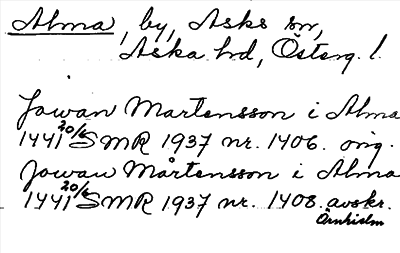 Alma, by, Aska sn,
Aska hd, Österg. l.
Jowan Martensson i Alma
1441 20/6 SMR 1937 nr. 1406. orig.
Jowan Mårtensson i Alma
1441 20/6 SMR 1937 nr. 1408. avskr.
Örnhielm